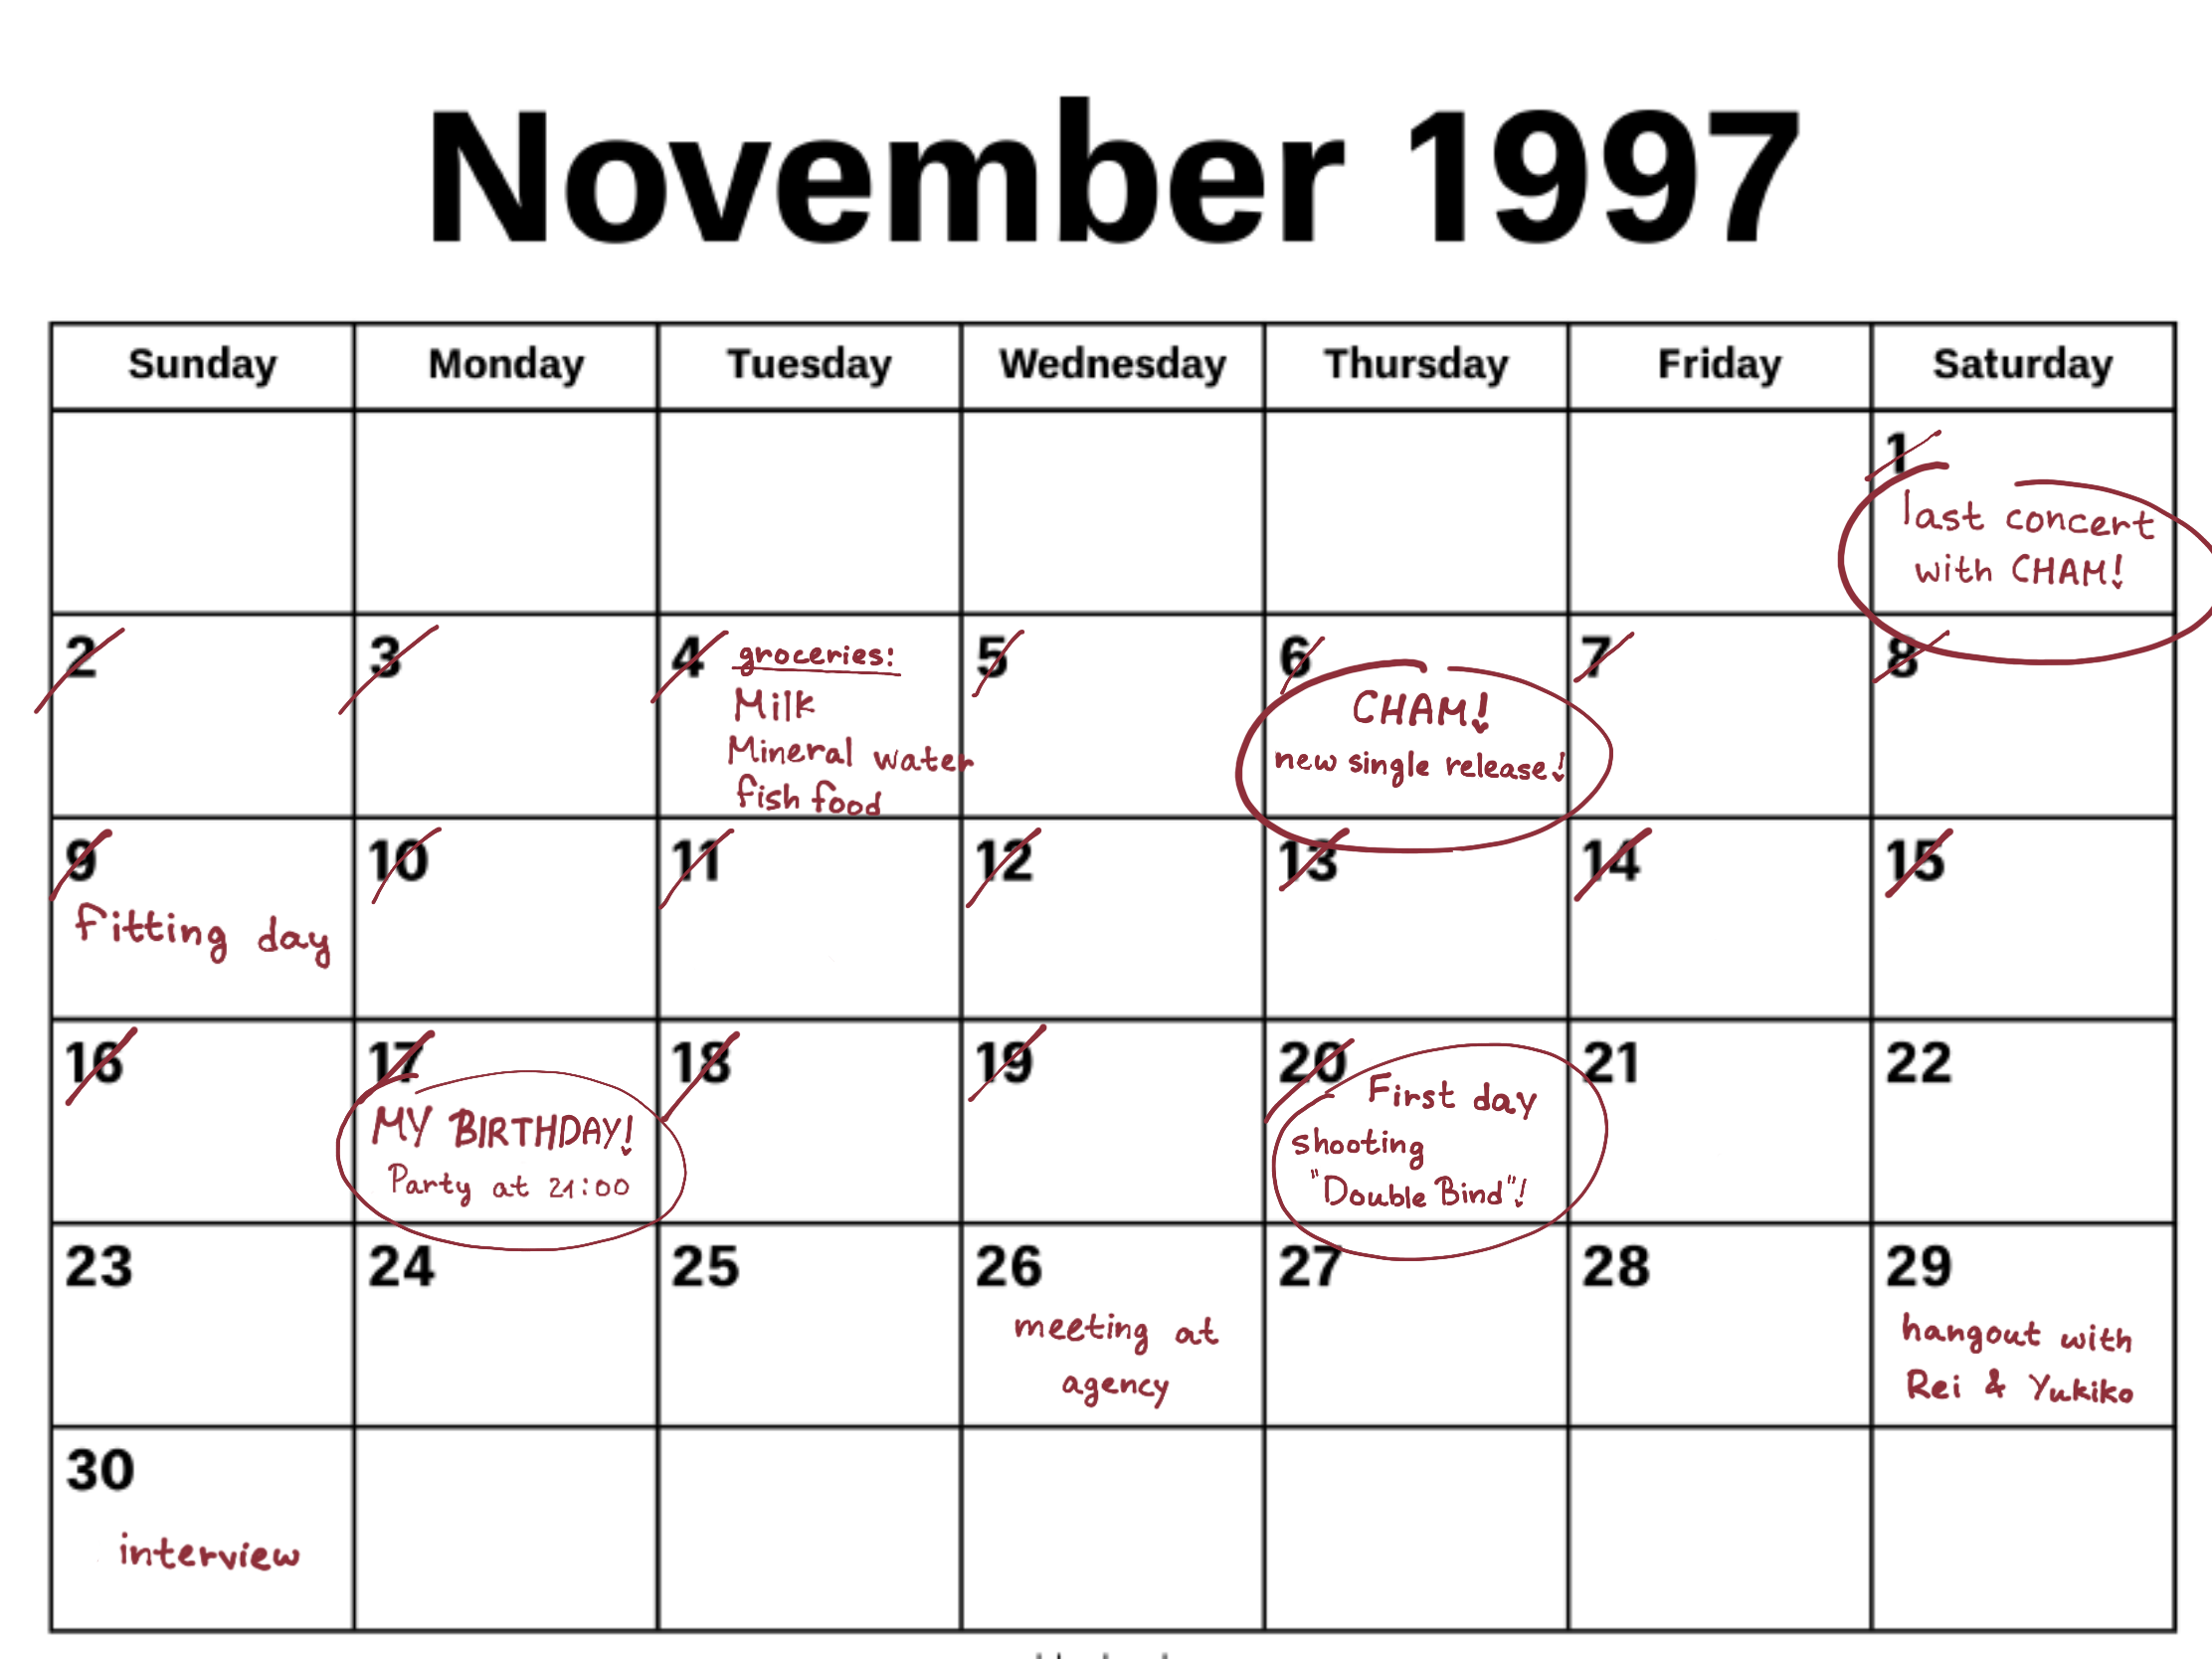 November 1997
Sunday Monday Tuesday Wednesday Thursday Friday Saturday
1
last concert
with CHAM!
2 3 4 5 6 7 8
groceries:
Milk
Mineral water
fish food
CHAM!
new single release!
9 10 11 12 13 14 15
fitting day
16 17 18 19 20 21 22
MY BIRTHDAY!
Party at 21:00
First day
shooting
"Double Bind"!
23 24 25 26 27 28 29
meeting at
agency
hangout with
Rei & Yukiko
30
interview